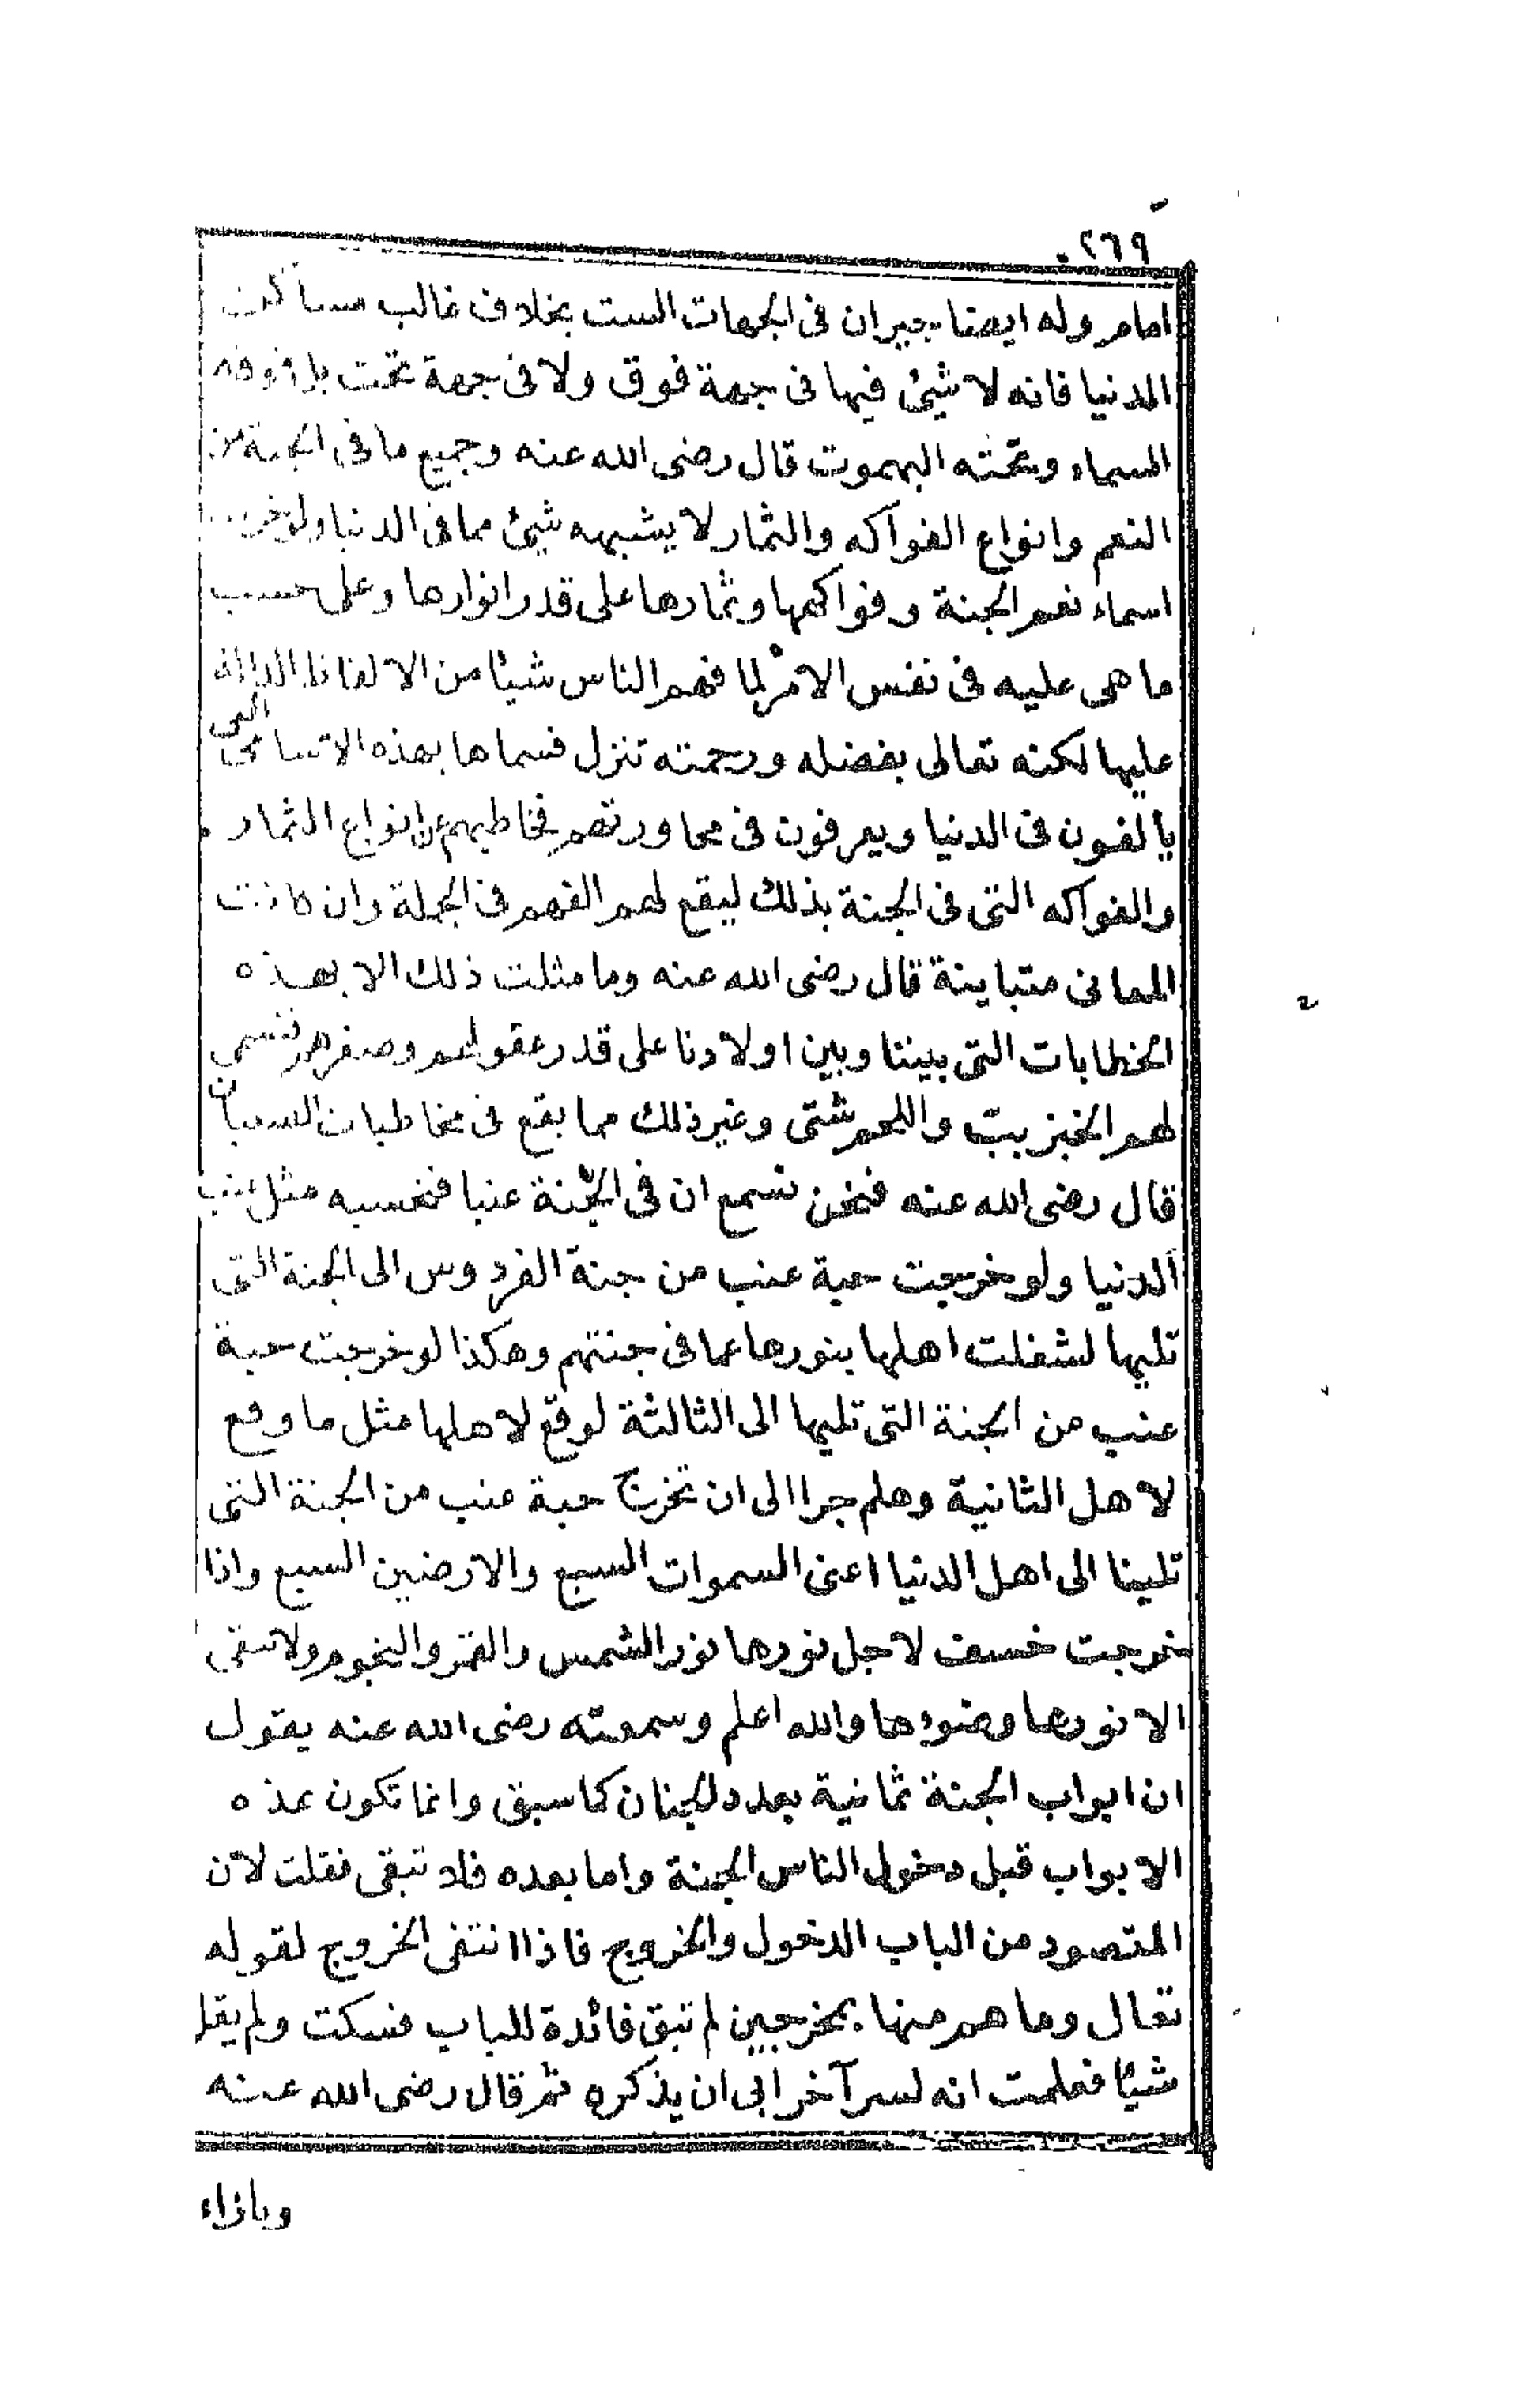 ٢٦٩
امامر وله ايضا جيران فى الجهات الست بخلاف غالب مساكن
الدنيا فانه لا شيئ فيها فى جهة فوق ولا فى جهة تحت بل فوقه
السماء وتحته البهموت قال رضى الله عنه وجميع ما فى الجنة من
النعم وانواع الفواكه والثمار لا يشبهه شيئ مما فى الدنيا ولو خرجت
اسماء نعم الجنة وفواكهها وثمارها على قدر انوارها وعلى حسب
ما هى عليه فى نفس الامر لما فهم الناس شيئا من الالفاظ الدالة
عليها لكنه تعالى بفضله ورحمته تنزل فسماها بهذه الاسامى التى
يألفون فى الدنيا ويعرفون فى محاورتهم فخاطبهم عن انواع الثمار
والفواكه التى فى الجنة بذلك ليقع لهم الفهم فى الجملة وان كانت
المعانى متباينة قال رضى الله عنه وما مثلت ذلك الا بهذه
الخطابات التى بيننا وبين اولادنا على قدر عقولهم وصغرهم فنسمى
لهم الخبز بيت واللحم شتى وغير ذلك مما يقع فى مخاطبات الصبيان
قال رضى الله عنه فنحن نسمع ان فى الجنة عنبا فنحسبه مثل عنب
الدنيا ولو خرجت حبة عنب من جنة الفردوس الى الجنة التى
تليها لشغلت اهلها بنورها عما فى جنتهم وهكذا لو خرجت حبة
عنب من الجنة التى تليها الى الثالثة لوقع لاهلها مثل ما وقع
لاهل الثانية وهلم جرا الى ان تخرج حبة عنب من الجنة التى
تلينا الى اهل الدنيا اعنى السموات السبع والارضين السبع واذا
خرجت خسف لاجل نورها نور الشمس والقمر والنجوم ولا يبقى
الا نورها وضوءها والله اعلم وسمعته رضى الله عنه يقول
ان ابواب الجنة ثمانية بعدد الجنان كما سبق وانما تكون هذه
الابواب قبل دخول الناس الجنة واما بعده فلا تبقى فقلت لان
المقصود من الباب الدخول والخروج فاذا انتفى الخروج لقوله
تعالى وما هم منها بمخرجين لم تبق فائدة للباب فسكت ولم يقل
شيئا فعلمت انه لسر آخر ابى ان يذكره ثم قال رضى الله عنه
وبازاء